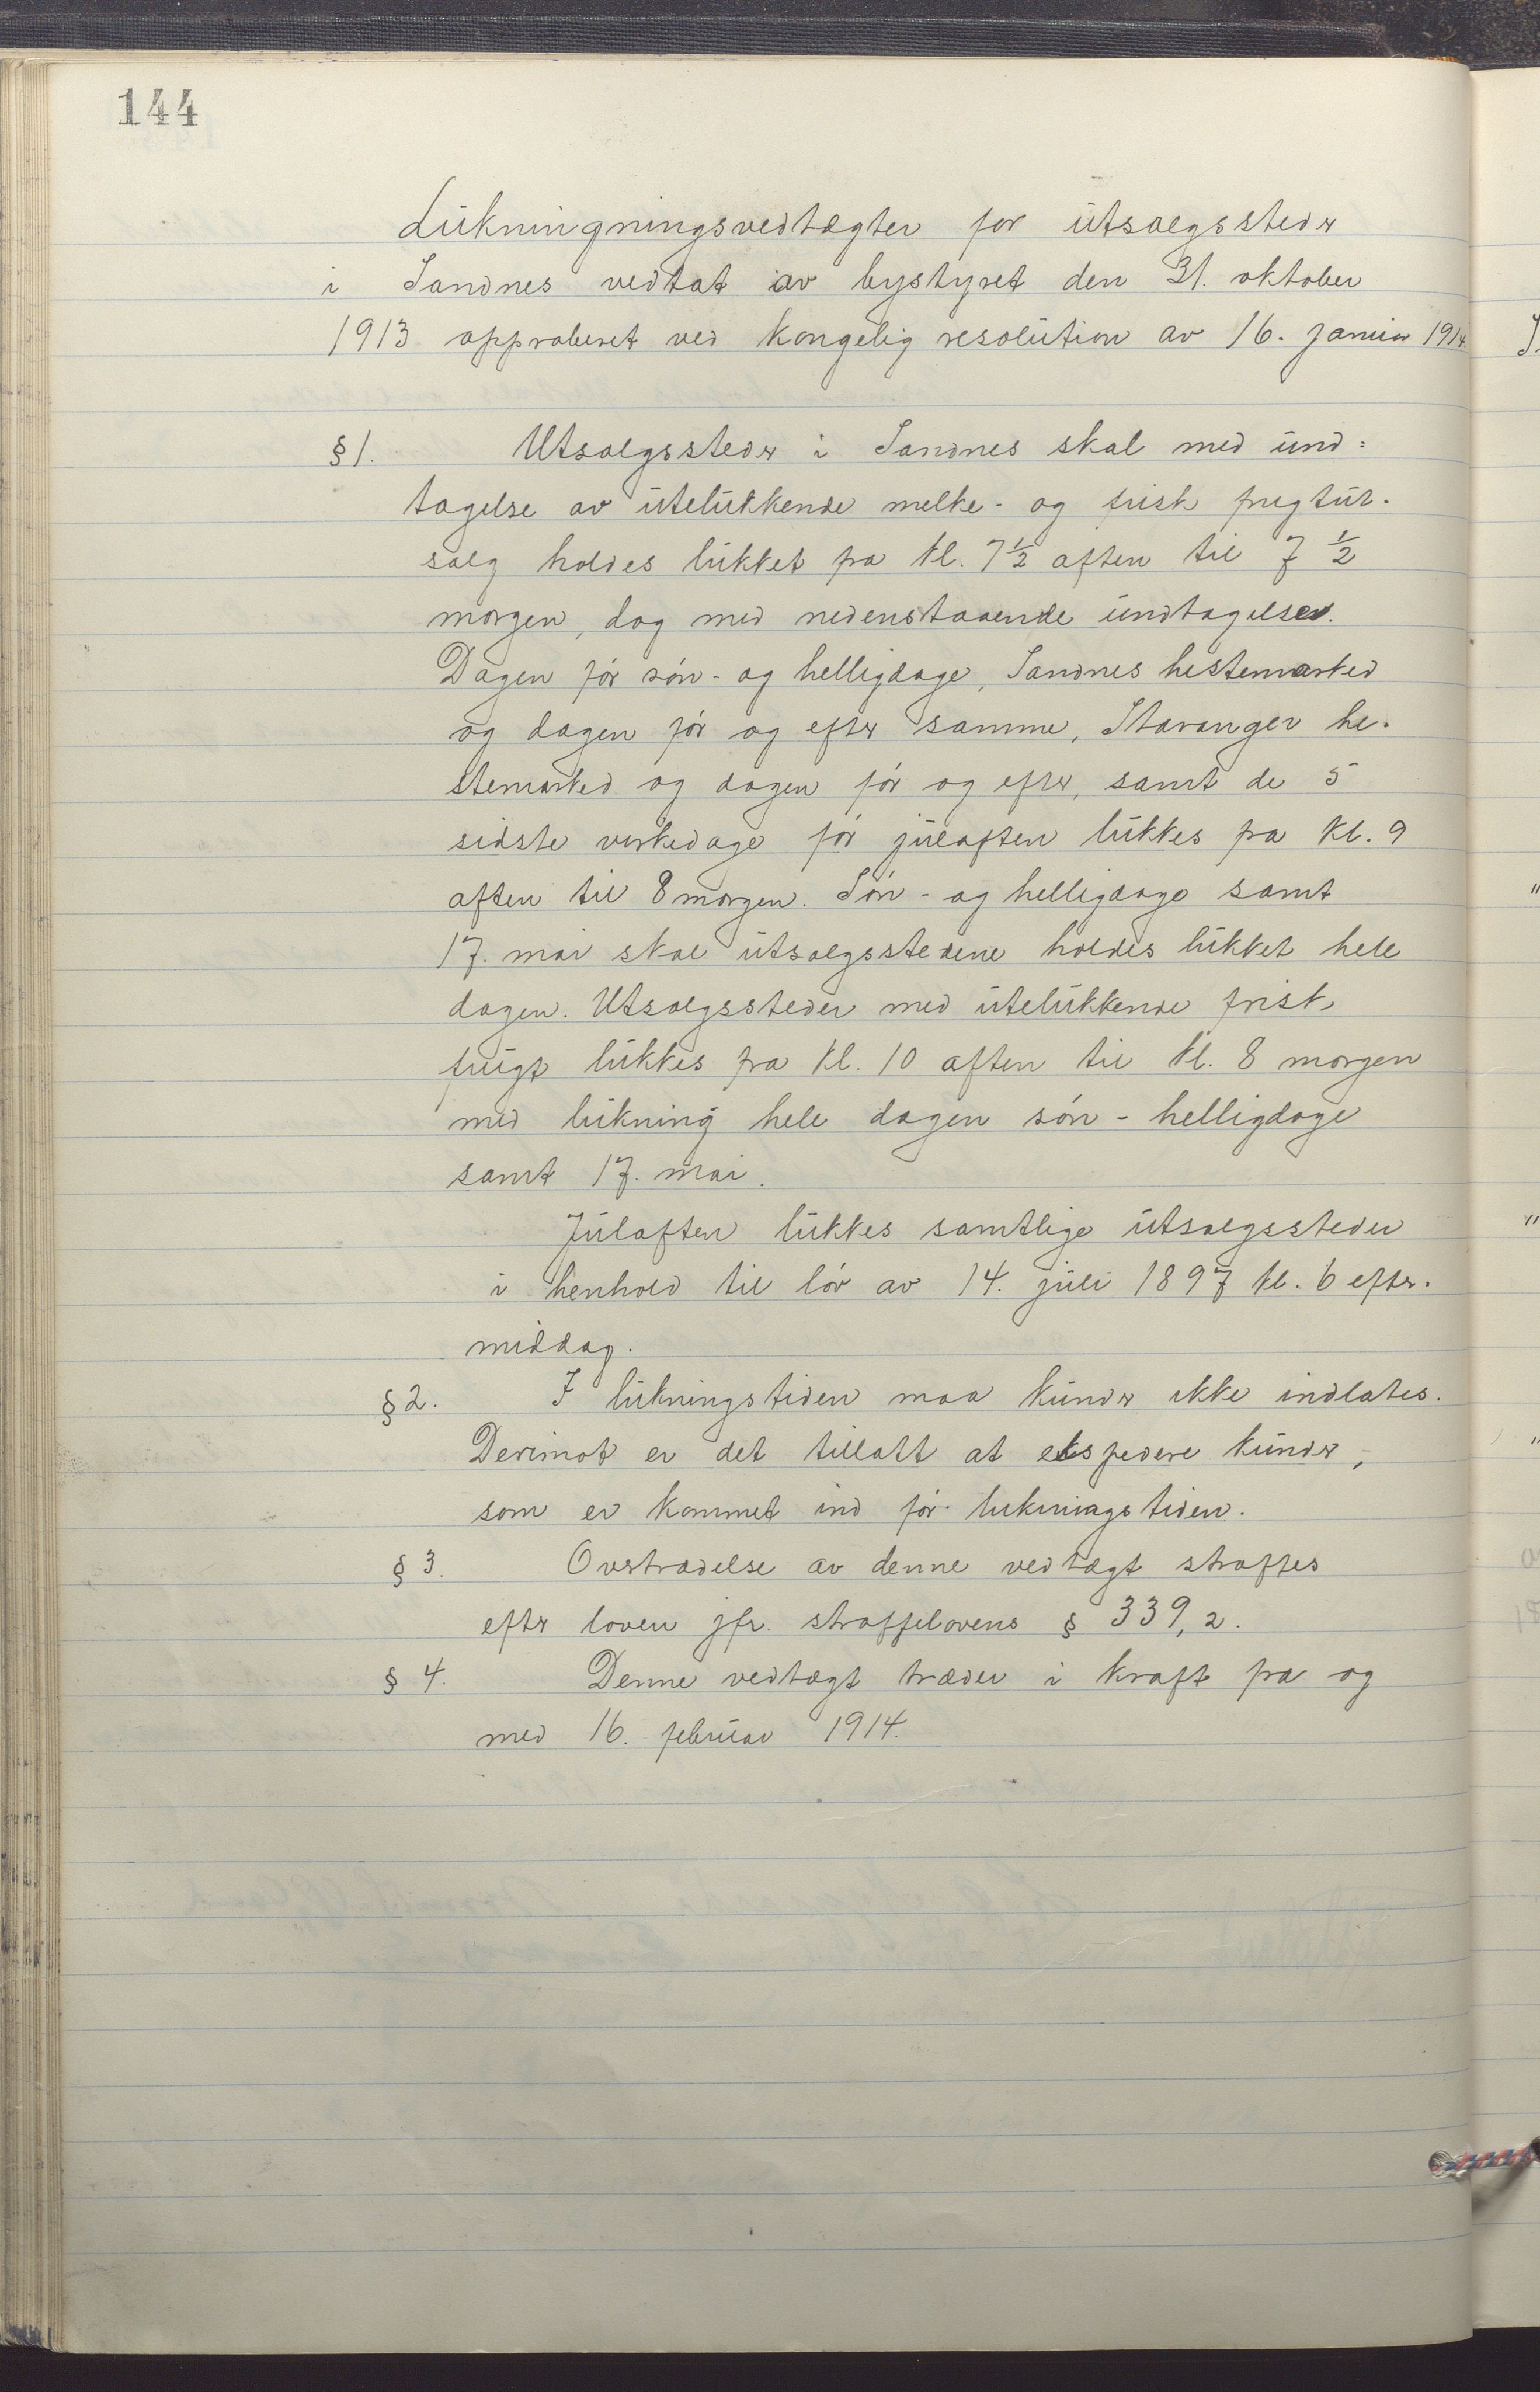 144
Lukningningsvedtægter for utsalgssteder
i Sandnes vedtat av bystyret den 31. oktober
1913 approberet ved kongelig resolution av 16. januar 1914.
§ 1. Utsalgssteder i Sandnes skal med und=
tagelse av utelukkende melke- og frisk frugtut-
salg holdes lukket fra kl. 7½ aften til 7 ½
morgen, dog med nedenstaaende undtagelser.
Dagen før søn- og helligdage, Sandnes hestemarked
og dagen før og efter samme, Stavanger he-
stemarked og dagen før og efter, samt de 5
sidste virkedage før julaften lukkes fra kl. 9
aften til 8 morgen. Søn- og helligdage samt
17. mai skal utsalgsstedene holdes lukket hele
dagen. Utsalgssteder med utelukkende frisk
frugt lukkes fra kl. 10 aften til kl. 8 morgen
med lukning hele dagen søn- helligdage
samt 17. mai.
Julaften lukkes samtlige utsalgssteder
i henhold til lov av 14. juli 1897 kl. 6 efter-
middag.
§ 2. I lukningstiden maa kunder ikke indlates.
Derimot er det tillatt at ekspedere kunder,
som er kommet ind før lukningstiden.
§ 3. Overtrædelse av denne vedtægt straffes
efter loven jfr. straffelovens § 339, 2.
§ 4. Denne vedtægt træder i kraft fra og
med 16. februar 1914.